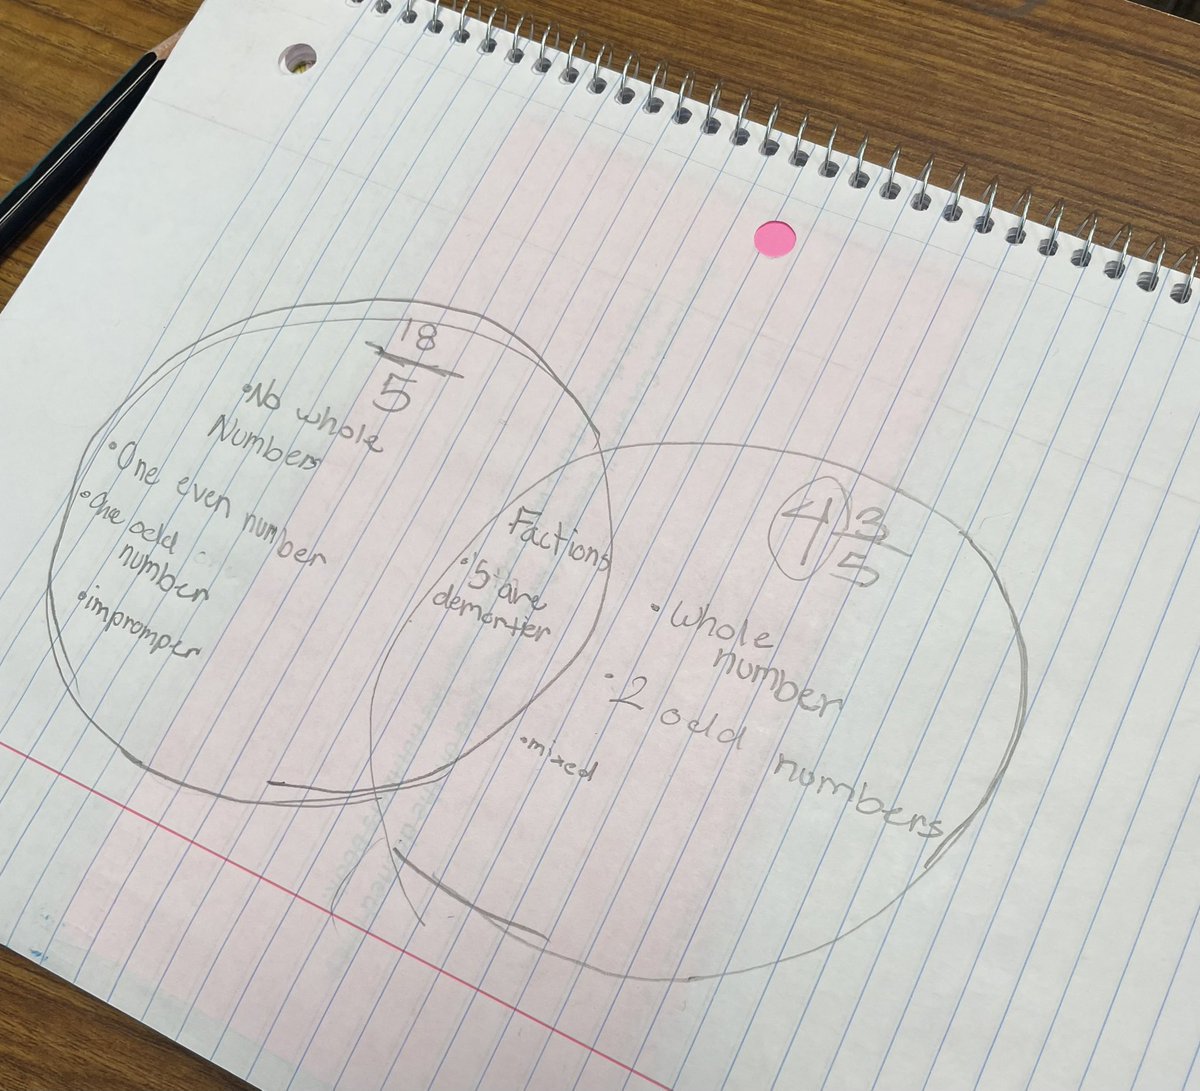 18
5
• No whole
Numbers
• One even number
• One odd
number
• impromper
Factions
• 5 are
demortier
4 3
5
• Whole
number
• 2 odd numbers
• mixed